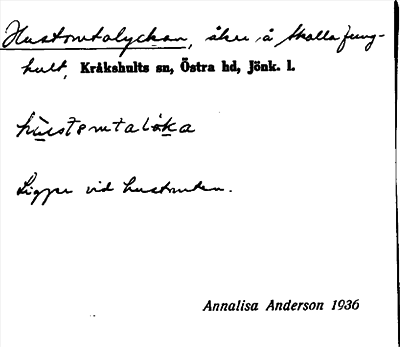 Hustomtalyckan, åker å Skalla ljung-
hult, Kråkshults sn, Östra hd, Jönk. l.
Ligger vid hustomten.
Annalisa Anderson 1936